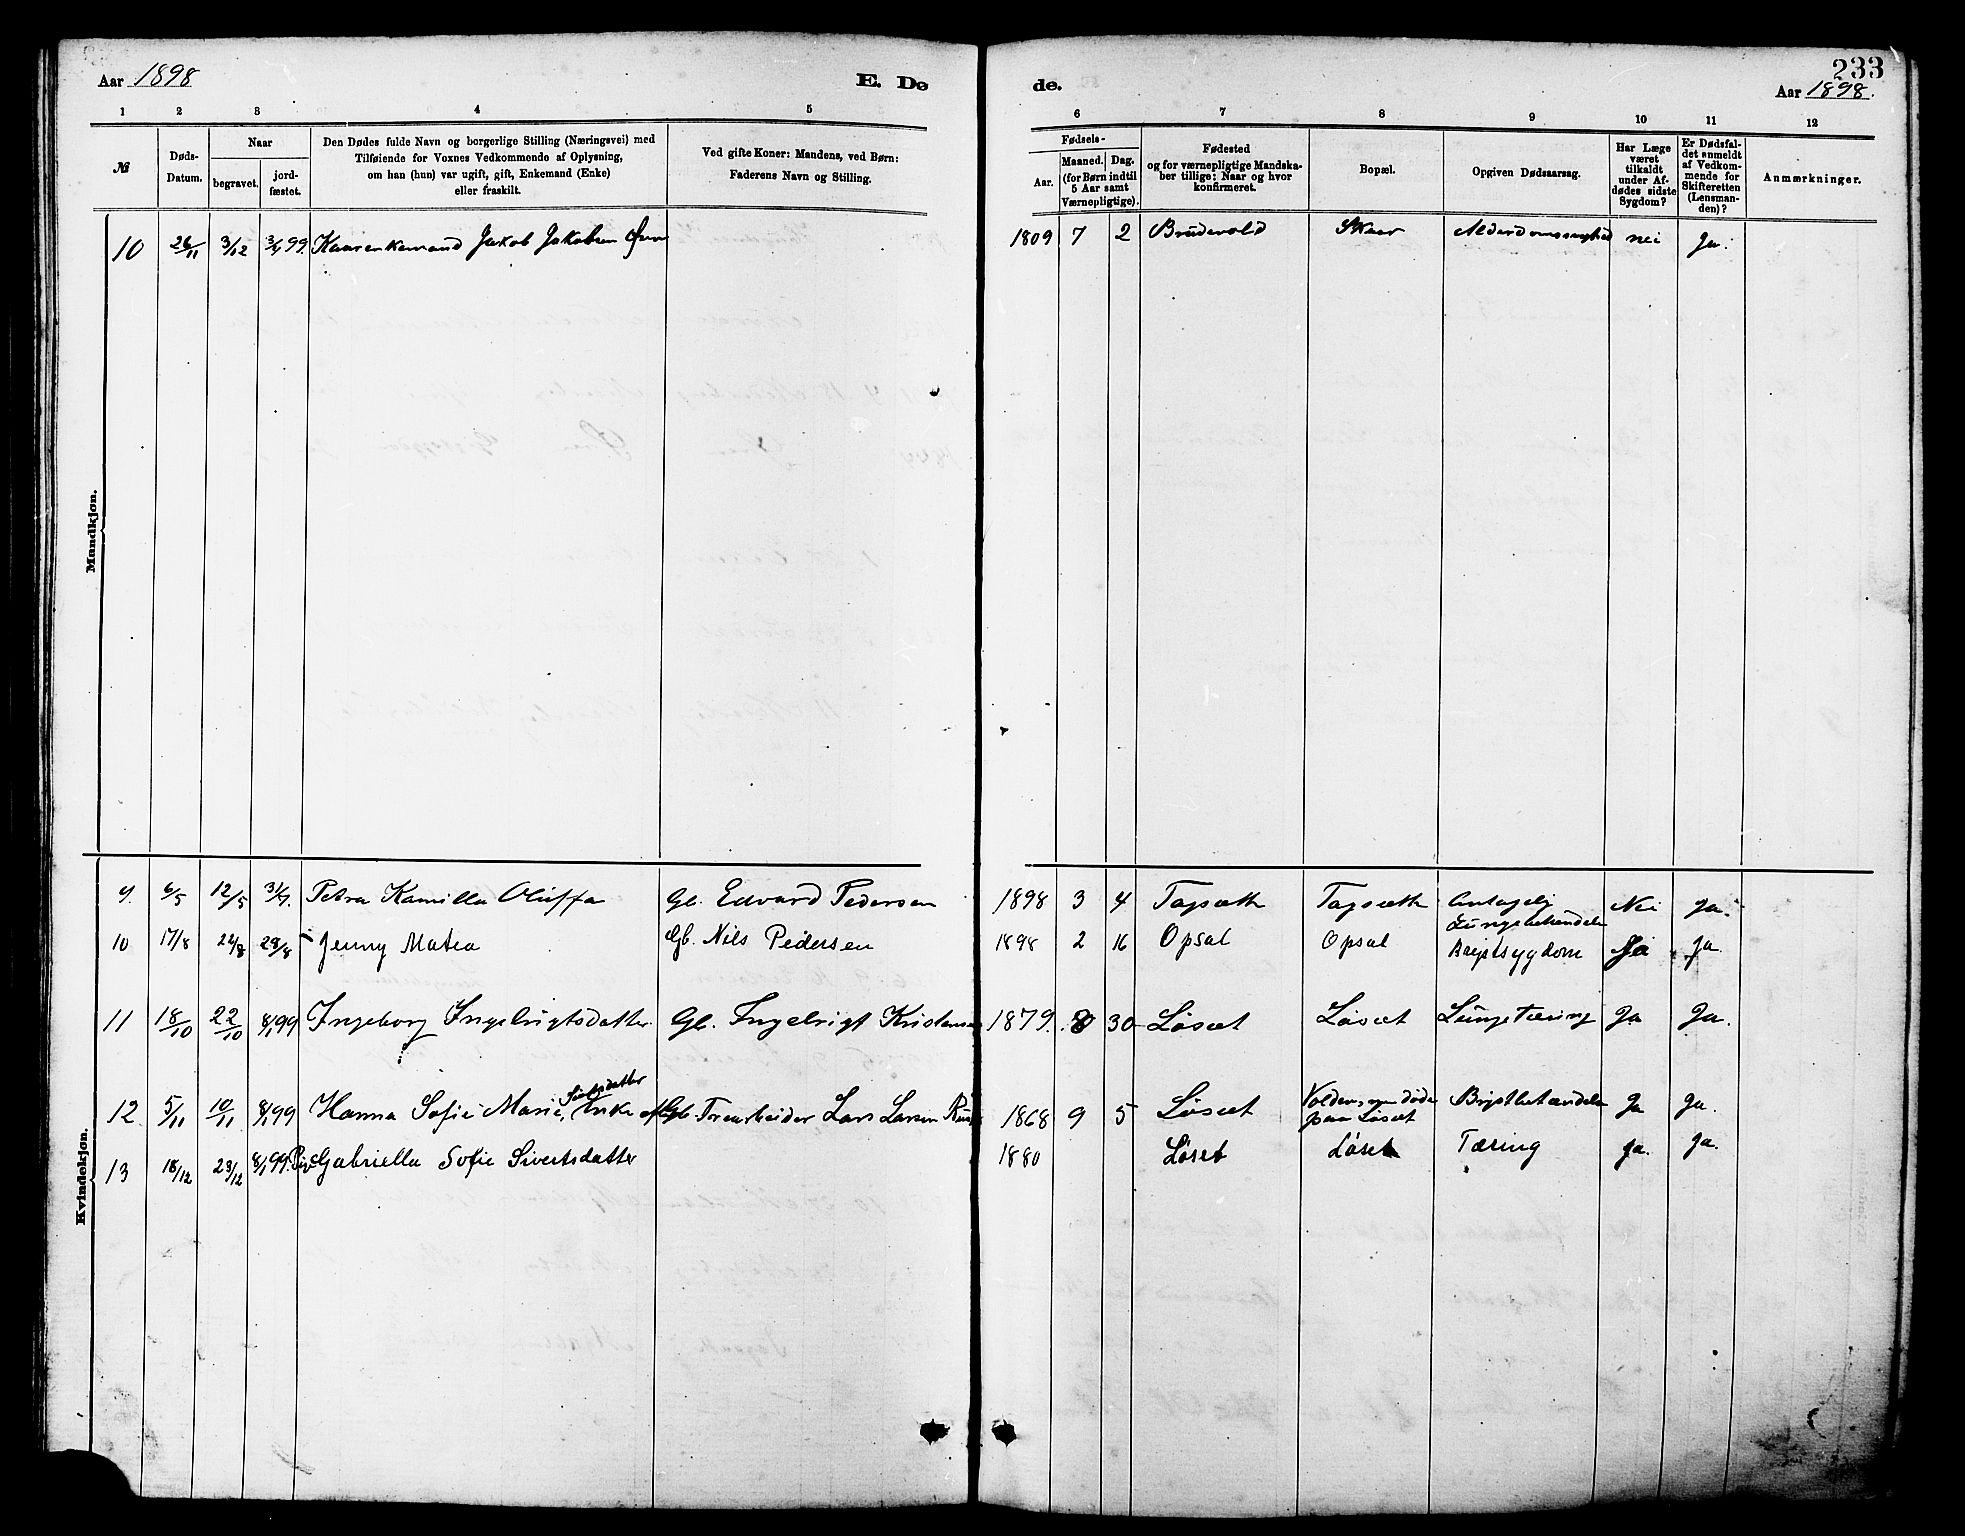 Aar 1898
E. Dø
de.
233
Aar 1898.
1 2 3 4 5
6 7 8 9 10 11 12
№
Døds-
Datum.
Naar
begravet.
jord-
fæstet.
Den Dødes fulde Navn og borgerlige Stilling (Næringsvei) med
Tilføiende for Voxnes Vedkommende af Oplysning,
om han (hun) var ugift, gift, Enkemand (Enke)
eller fraskilt.
Ved gifte Koner: Mandens, ved Børn:
Faderens Navn og Stilling.
Fødsels-
Aar.
Maaned. Dag.
(for Børn indtil
5 Aar samt
Værnepligtige).
Fødested
og for værnepligtige Mandska-
ber tillige: Naar og hvor
konfirmeret.
Bopæl.
Opgiven Dødsaarsag.
Har Læge
været
tilkaldt
under Af-
dødes sidste
Sygdom?
Er Dødsfal-
det anmeldt
af Vedkom-
mende for
Skifteretten
(Lensman-
den)?
Anmærkninger.
Mandkjøn.
10 26/11 3/12 99. Kaarenkemand Jakob Jakobsen 1809 7 2 Brudevold Skaar Alderdomssvaghed nei Ja.
Kvindekjøn.
9. 6/5 12/5 31/7. Petra Kamilla Oluffa Gb. Edvard Pedersen 1898 3 4 Tapsæth Tapsæth Antagelig Nei Ja.
Lungebetændelse
10 17/8 22/8 28/8 Jenny Matea Gb. Nils Pedersen 1898 2 16 Opsal Opsal Brystsygdom Ja Ja.
11 18/10 22/10 8/1 99 Ingeborg Ingebrigtsdatter Gb. Ingebrigt Kristensen 1879. 8 30 Løsæt Løsæt Lungetæring Ja Ja.
12 5/11 10/11 8/1 99 Hanna Sofie Marie, Enke af Gb. Forarbeider Lars Larsen 1868 9 5 Løsæt Volden, som døde Brystbetændelse Ja Ja.
paa Løsæt
13 18/12 23/12 8/1 99. Pige Gabriella Sofie Sivertsdatter 1880 Løset Løset Tæring Ja. Ja.